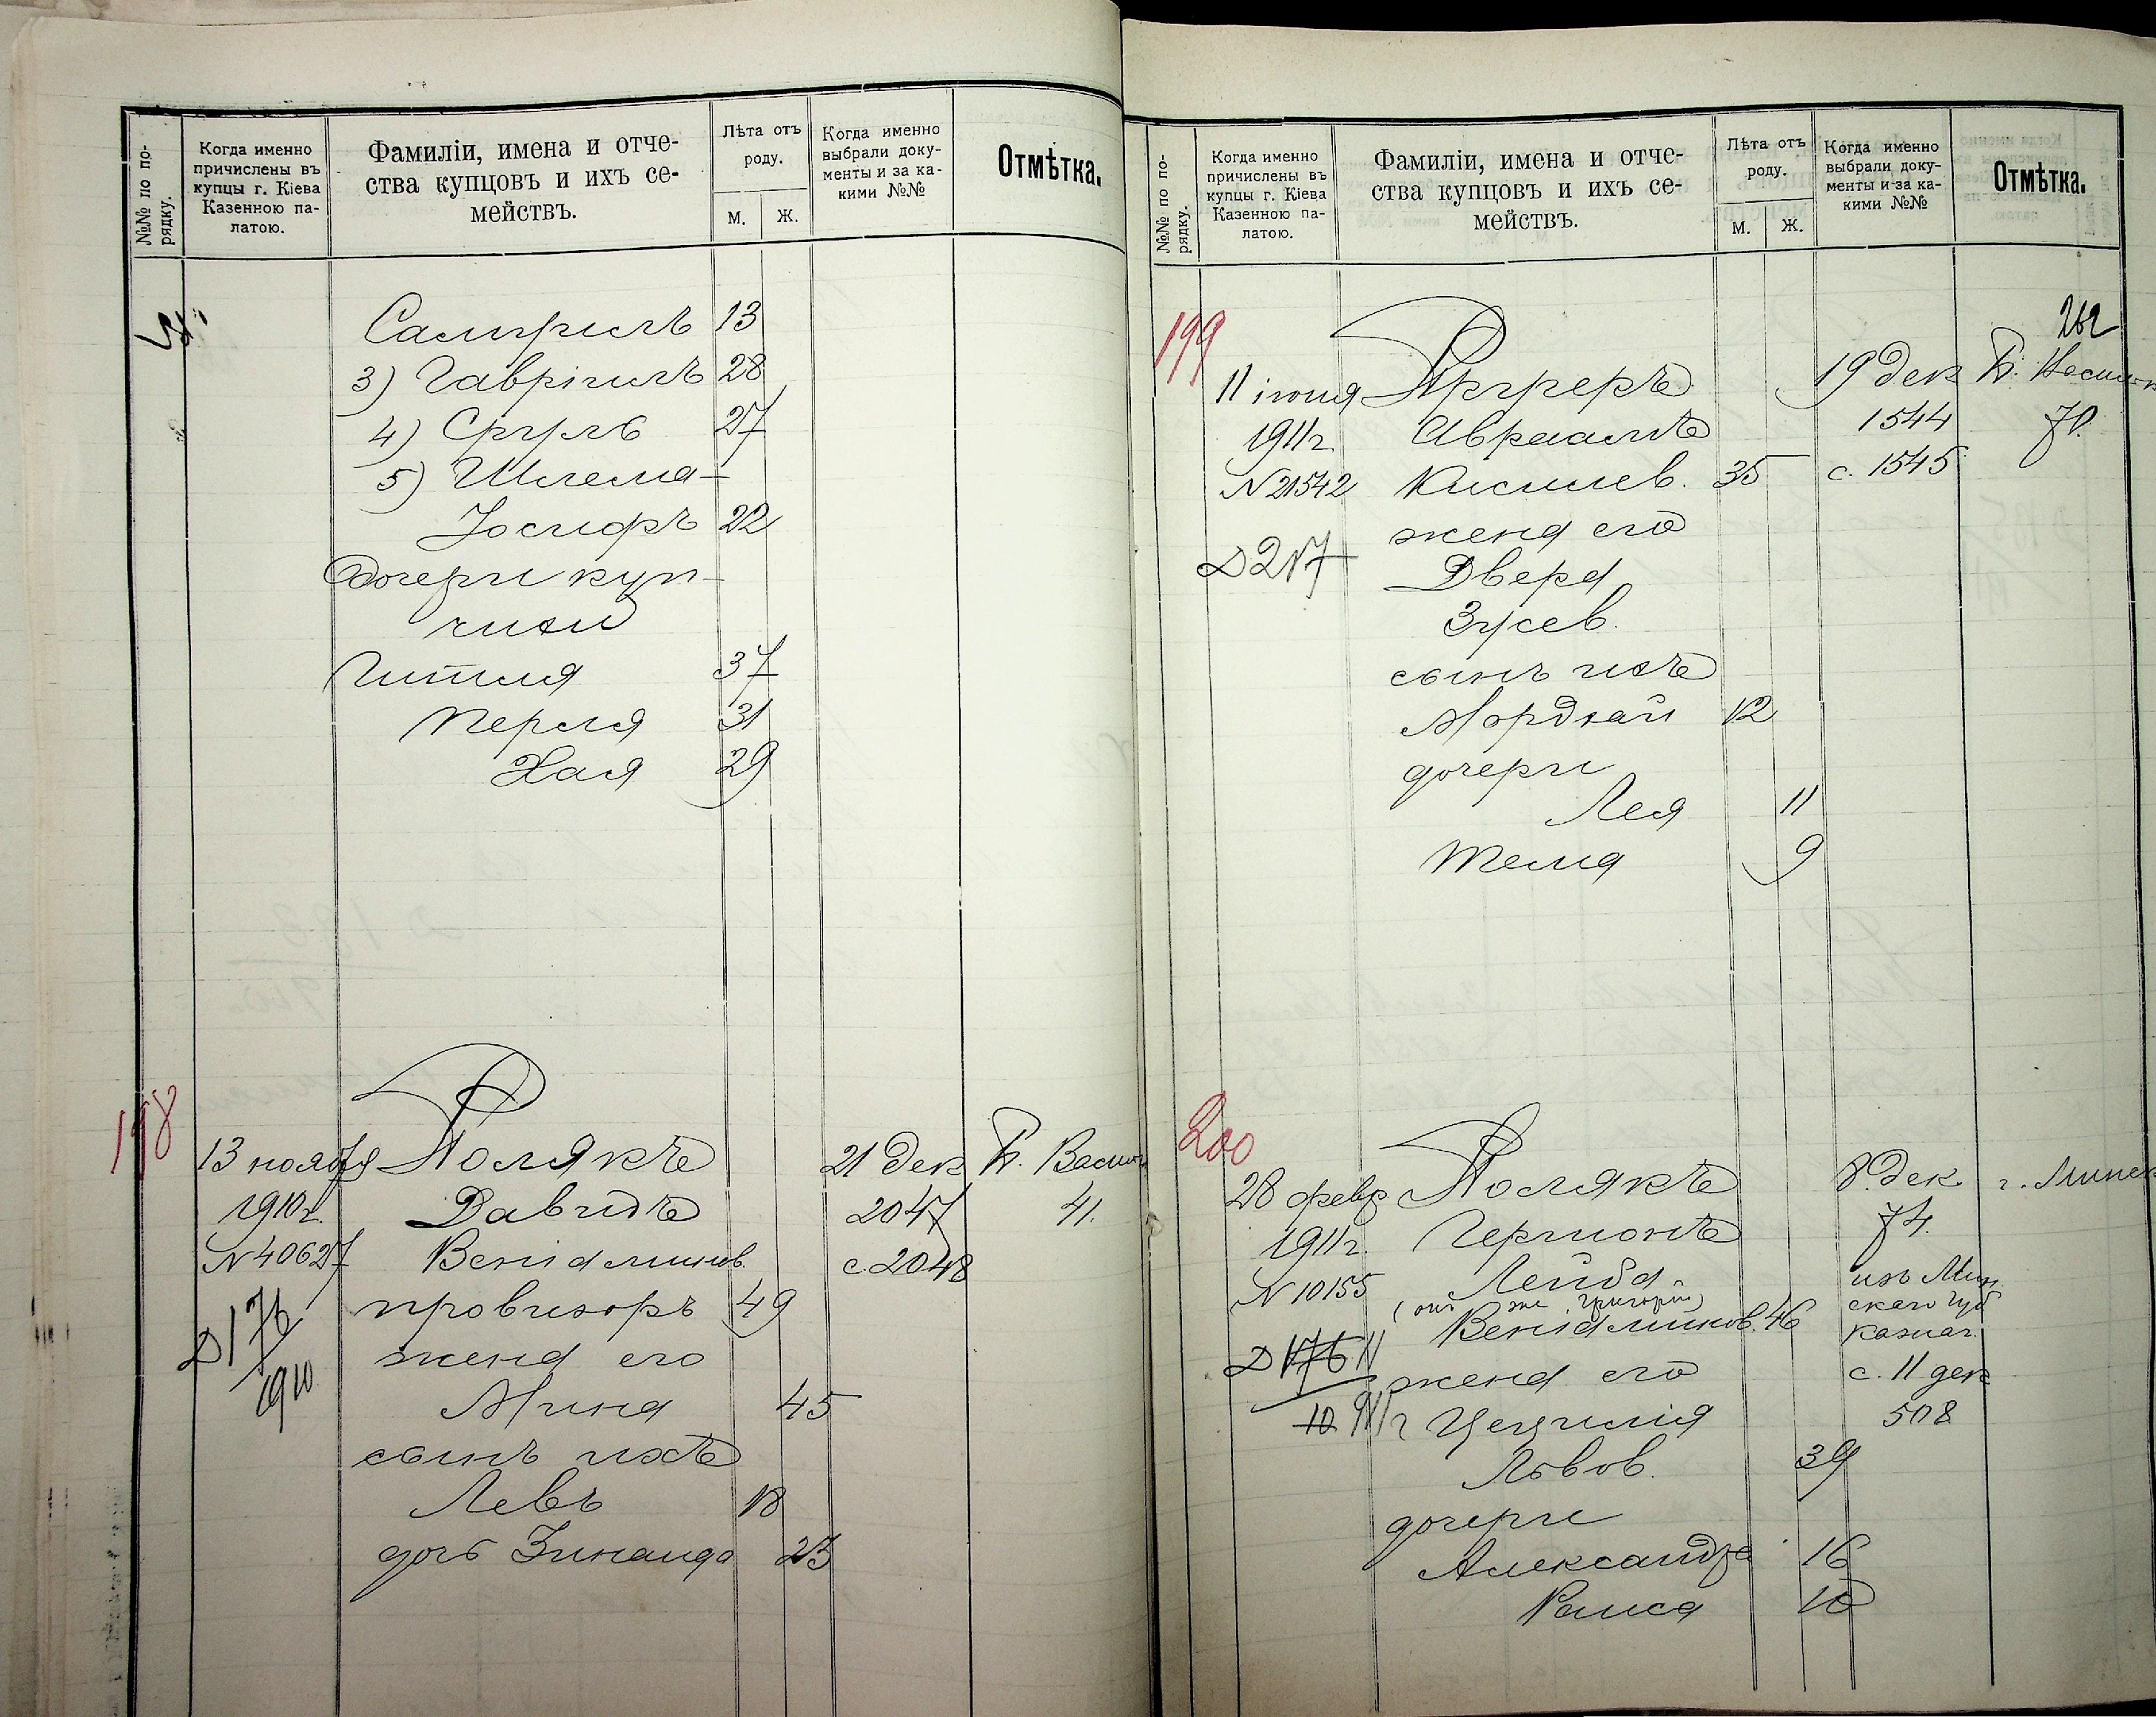 №№ по по-
рядку.
Когда именно
причислены въ
купцы г. Кіева
Казенною па-
латою.
Фамиліи, имена и отче-
ства купцовъ и ихъ се-
мействъ.
Лѣта отъ
роду.
М. Ж.
Когда именно
выбрали доку-
менты и за ка-
кими №№
Отмѣтка.
13
3) Гавріилъ 28
4) Сруль 27
5) Шлема-
Іосифъ 22
Дочери куп-
чихи
Гитля 37
Перля 31
Хая 29
198
13 ноября Полякъ 21 дек В. Васил
1910 г. Давидъ 2047 41.
N 40627 Веніаминов. с. 2048
Д 176 провизоръ 49
1910 жена его
Мина 45
сынъ ихъ
Левъ 18
дочь Зинаида 23
№№ по по-
рядку.
Когда именно
причислены въ
купцы г. Кіева
Казенною па-
латою.
Фамиліи, имена и отче-
ства купцовъ и ихъ се-
мействъ.
Лѣта отъ
роду.
М. Ж.
Когда именно
выбрали доку-
менты и за ка-
кими №№
Отмѣтка.
262
199
11 іюня 19 дек
1911 г. Авраамъ 1544 70.
N 21542 Кисилев. 35 с. 1545
жена его
Д 217 Двера
Зусев.
сынъ ихъ
Мордхай 12
дочери
Лея 11
Тема 9
200
28 февр Полякъ 8 дек г. Минск
1911 г. Германъ 74.
N 10155 Лейба изъ Мин
(онъ же Григорій) скаго Губ
Веніаминов. 46 казнач.
Д 176 11 жена его с. 11 дек
10 911 г Цецилія 508
Львов. 39
дочери
Александра 16
Раиса 10